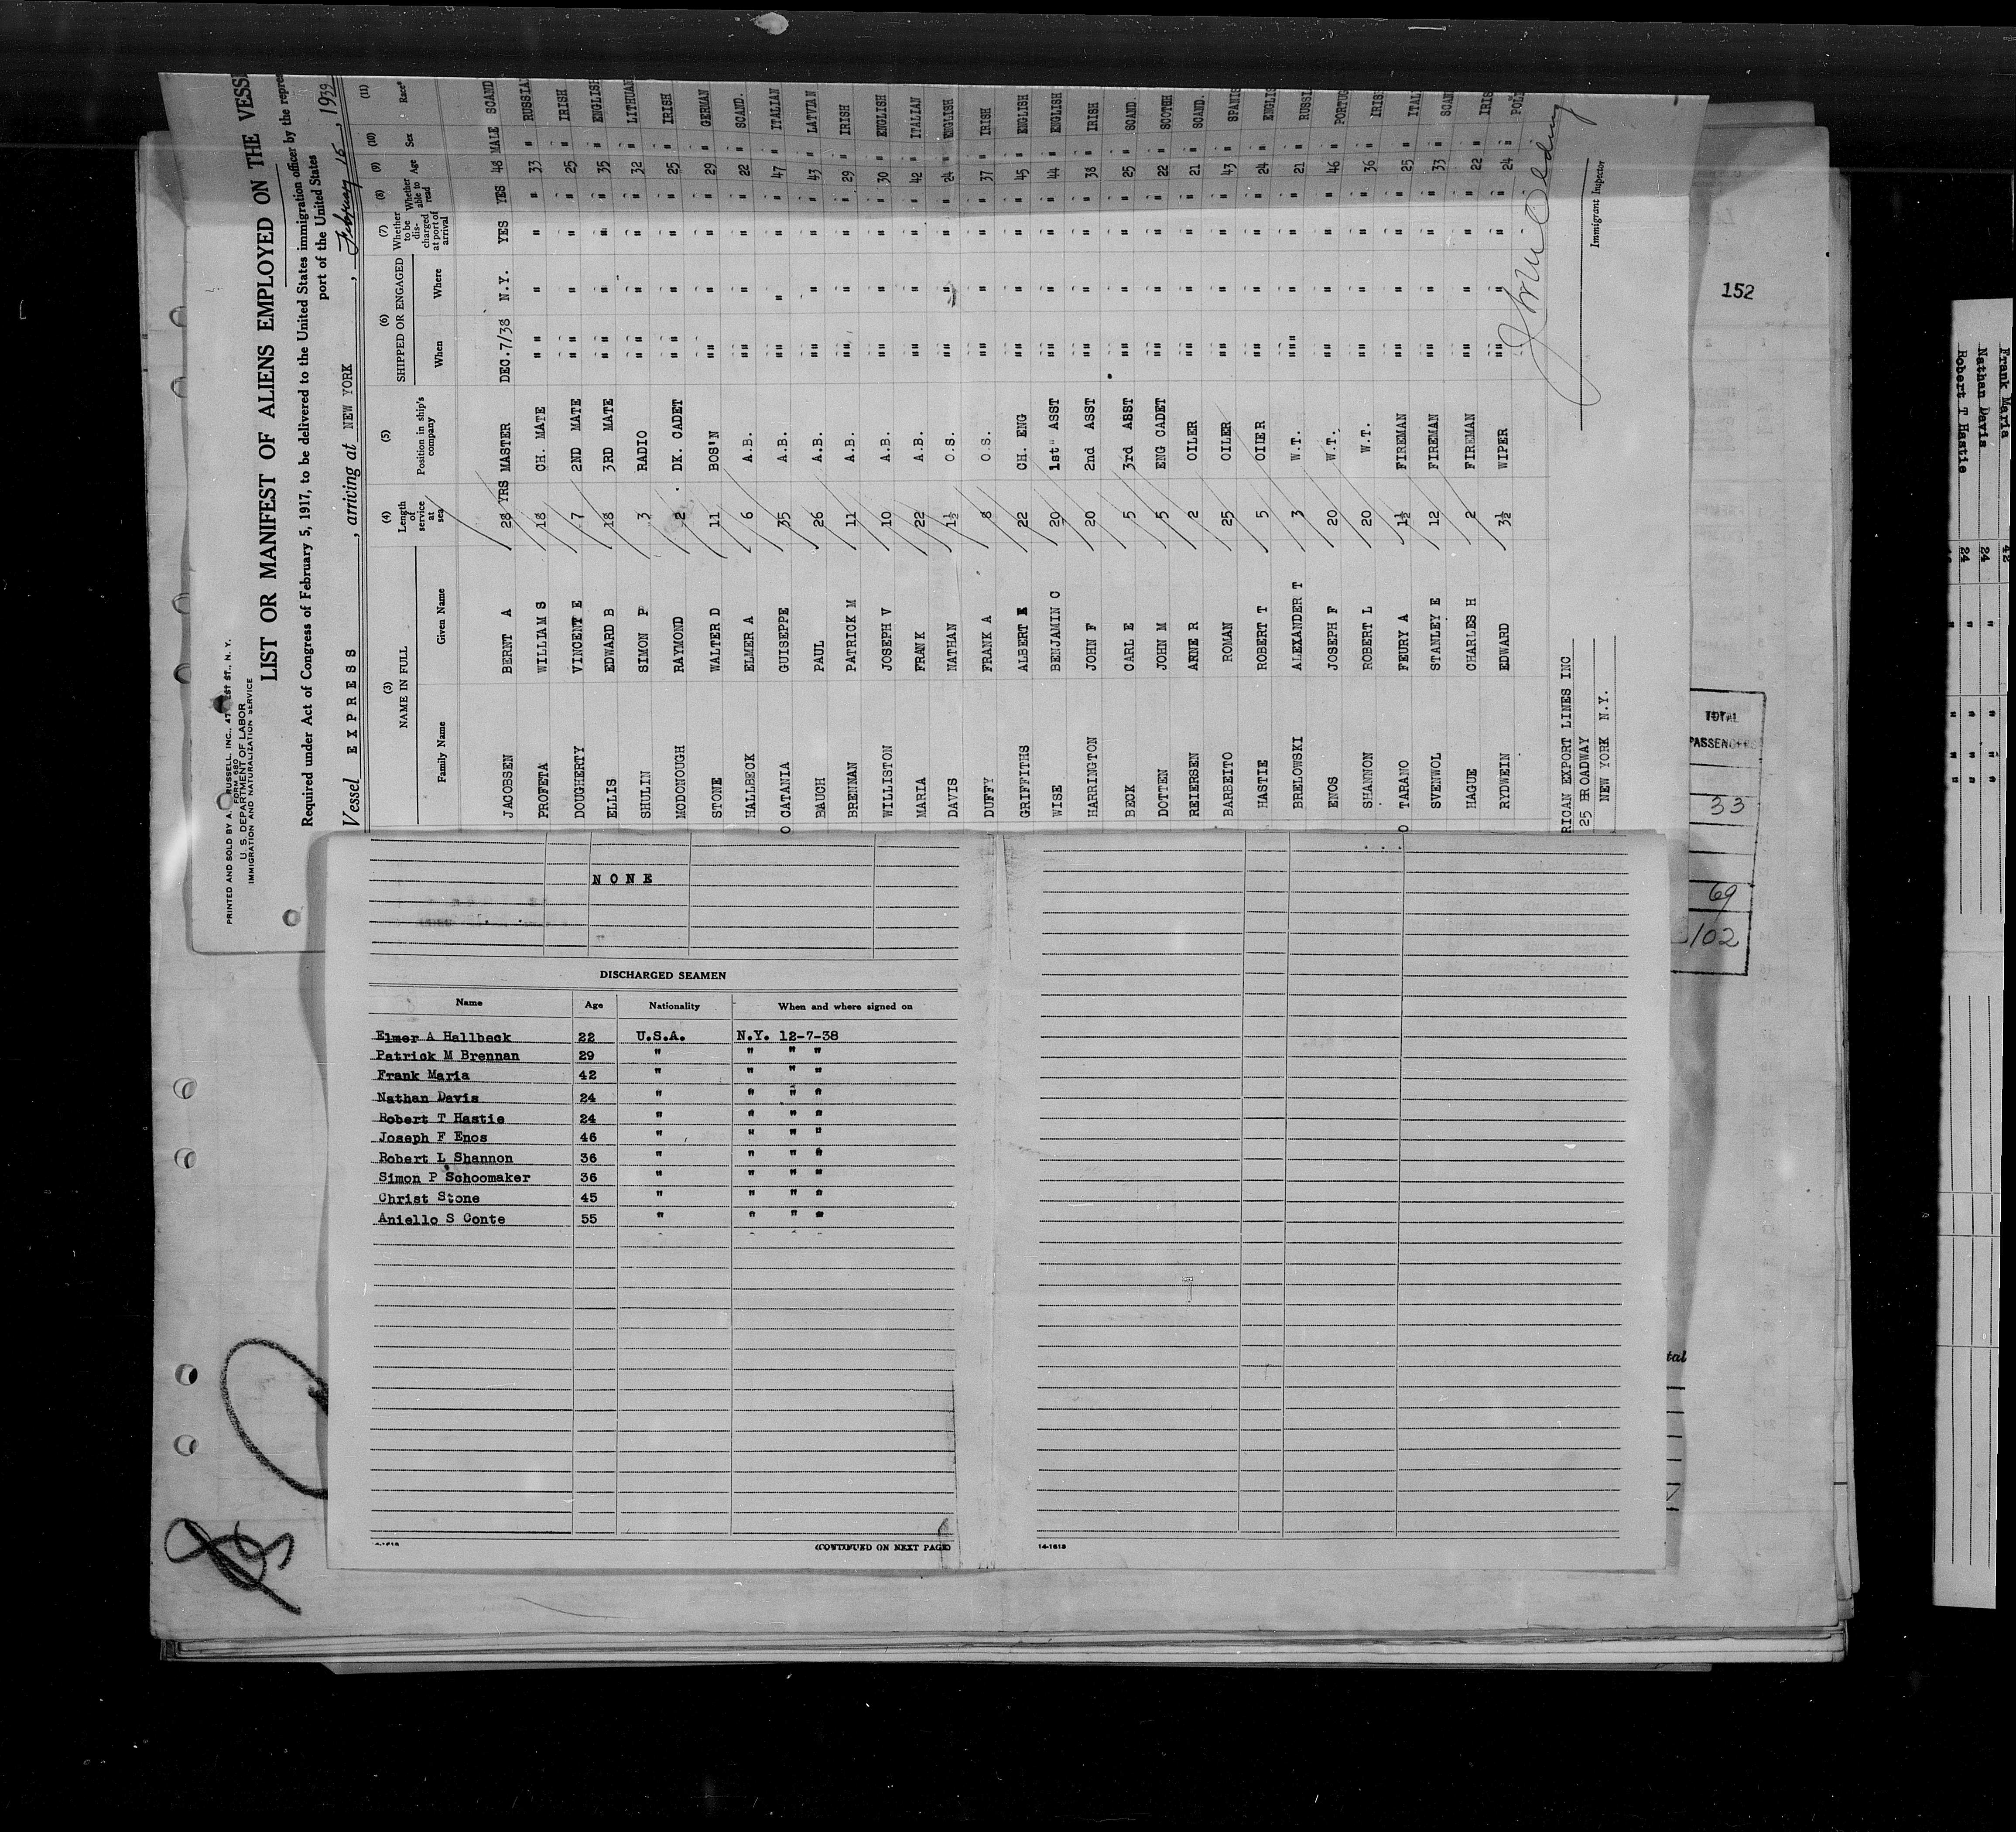 PRINTED AND SOLD BY A. RUSSELL, INC., 47 ST., N. Y.
FORM 680
U. S. DEPARTMENT OF LABOR
IMMIGRATION AND NATURALIZATION SERVICE
LIST OR MANIFEST OF ALIENS EMPLOYED ON THE
Required under Act of Congress of February 5, 1917, to be delivered to the United States immigration officer by the
port of the United States
Vessel EXPRESS, arriving at NEW YORK, February 15, 1939
(3) NAME IN FULL (4) Length of service at sea (5) Position in ship's company (6) SHIPPED OR ENGAGED (7) Whether to be discharged at port of arrival (8) Whether able to read (9) Age (10) Sex (11) Race*
Family Name Given Name When Where
JACOBSEN BERNT A 28 YRS MASTER DEC.7/38 N.Y. YES YES 48 MALE SCAND
PROFETA WILLIAM S 18 CH. MATE " " " " " 33 " RUSSIA
DOUGHERTY VINCENT E 7 2ND MATE " " " " " 25 " IRISH
ELLIS EDWARD B 18 3RD MATE " " " " " 35 " ENGLISH
SHULIN SIMON P 3 RADIO " " " " " 32 " LITHUAN
MCDONOUGH RAYMOND 2 DK. CADET " " " " " 25 " IRISH
STONE WALTER D 11 BOS'N " " " " " 29 " GERMAN
HALLBECK ELMER A 6 A.B. " " " " " 22 " SCAND.
CATANIA GUISEPPE 35 A.B. " " " " " 47 " ITALIAN
BAUCH PAUL 26 A.B. " " " " " 43 " LATVIAN
BRENNAN PATRICK M 11 A.B. " " " " " 29 " IRISH
WILLISTON JOSEPH V 10 A.B. " " " " " 30 " ENGLISH
MARIA FRANK 22 A.B. " " " " " 42 " ITALIAN
DAVIS NATHAN 1½ O.S. " " " " " 24 " ENGLISH
DUFFY FRANK A 8 O.S. " " " " " 37 " IRISH
GRIFFITHS ALBERT E 22 CH. ENG " " " " " 45 " ENGLISH
WISE BENJAMIN C 20 1st" ASST " " " " " 44 " ENGLISH
HARRINGTON JOHN F 20 2nd ASST " " " " " 38 " IRISH
BECK CARL E 5 3rd ASST " " " " " 25 " SCAND.
DOTTEN JOHN M 5 ENG CADET " " " " " 22 " SCOTCH
REIERSEN ARNE R 2 OILER " " " " " 21 " SCAND.
BARBEITO ROMAN 25 OILER " " " " " 43 " SPANIS
HASTIE ROBERT T 5 OIER " " " " " 24 " ENGLIS
BRELOWSKI ALEXANDER T 3 W.T. " " " " " " 21 " RUSSI
ENOS JOSEPH F 20 W.T. " " " " " 46 " PORTUG
SHANNON ROBERT L 20 W.T. " " " " " 36 " IRIS
TARANO FEURY A 1½ FIREMAN " " " " " 25 " ITAL
SVENWOL STANLEY E 12 FIREMAN " " " " " 33 " SCAN
HAGUE CHARLES H 2 FIREMAN " " " " " 22 " IRIS
RYDWEIN EDWARD 3½ WIPER " " " " " 24 " POL
RICAN EXPORT LINES INC
25 BROADWAY
NEW YORK N.Y.
Immigrant Inspector
152
TOTAL
PASSENGERS
33
69
102
tal
Frank Maria 42
Nathan Davis 24 " " " "
Robert T Hastie 24 " " " "
NONE
DISCHARGED SEAMEN
Name Age Nationality When and where signed on
Elmer A Hallbeck 22 U.S.A. N.Y. 12-7-38
Patrick M Brennan 29 " " " "
Frank Maria 42 " " " "
Nathan Davis 24 " " " "
Robert T Hastie 24 " " " "
Joseph F Enos 46 " " " "
Robert L Shannon 36 " " " "
Simon P Schoomaker 36 " " " "
Christ Stone 45 " " " "
Aniello S Conte 55 " " " "
(CONTINUED ON NEXT PAGE)
14-1613